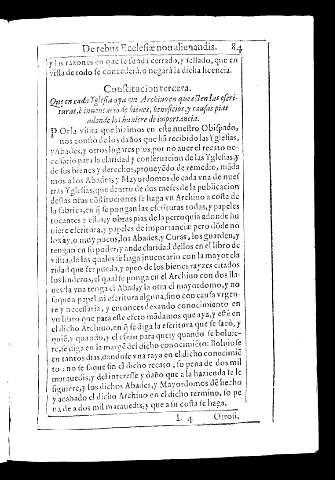 De rebus Ecclesiæ non alienandis. 84
y las razones en que se funda cerrado, y sellado, que en
vista de todo se concederà, o negarà la dicha licencia.
Constitucion tercera.
Que en cada Yglesia aya un Archivo en que esten las escri-
turas, è inventario de bienes, beneficios, y causas pias
adonde los huviere de importancia.
POr la visita que hizimos en este nuestro Obispado,
nos constò de los daños que hà recibido las Yglesias,
y Abades, y otros lugares pios, por no aver el recato ne-
cessario para la claridad y conservacion de las Yglesias, y
de sus bienes y derechos, proveyèdo de remedio, màda
mos a los Abades, y Mayordomos de cada vna de nues
tras Yglesias, que dentro de dos meses de la publicacion
destas nras còstituciones se haga vn Archivo a costa de
la fabrica, en q̃ se pongan las escrituras todas, y papeles
tocantes a ella, y obras pias de la perroquia adonde hu
viere escritura, y papeles de importancia: pero dòde no
los ay, o muy pocos, los Abades, y Curas, los guarden, y
tengan en su poder, y ande claridad dellos en el libro de
visita, de las quales se haga inventario con la mayor cla
ridad que ser pueda, y apeo de los bienes rayzes citados
los linderos, el qual se ponga en el Archivo con dos lla-
ves: la vna tenga el Abad, y la otra el mayordomo, y no
saquẽ papel ni escritura alguna, sino con causa vrgen-
te y necessaria, y entonces dexando conocimiento en
vn libro que para este efeto màdamos que aya, y estè en
el dicho Archivo, en q̃ se diga la escritura que se sacò, y
quiẽ, y quando, y el efeto para que: y quando se bolvie-
re, se diga en la margẽ del dicho conocimiẽto: Bolviose
en tantos dias, dandose vna raya en el dicho conocimiẽ
to: no se saque sin el dicho recato, so pena de dos mil
maravedis, y del interesse y daño que a la hazienda se le
siguiere, y los dichos Abades, y Mayordomos dẽ hecho
y acabado el dicho Archivo en el dicho termino, so pe
na de a dos mil maravedis, y que a su costa se haga.
L 4 Otrosi.